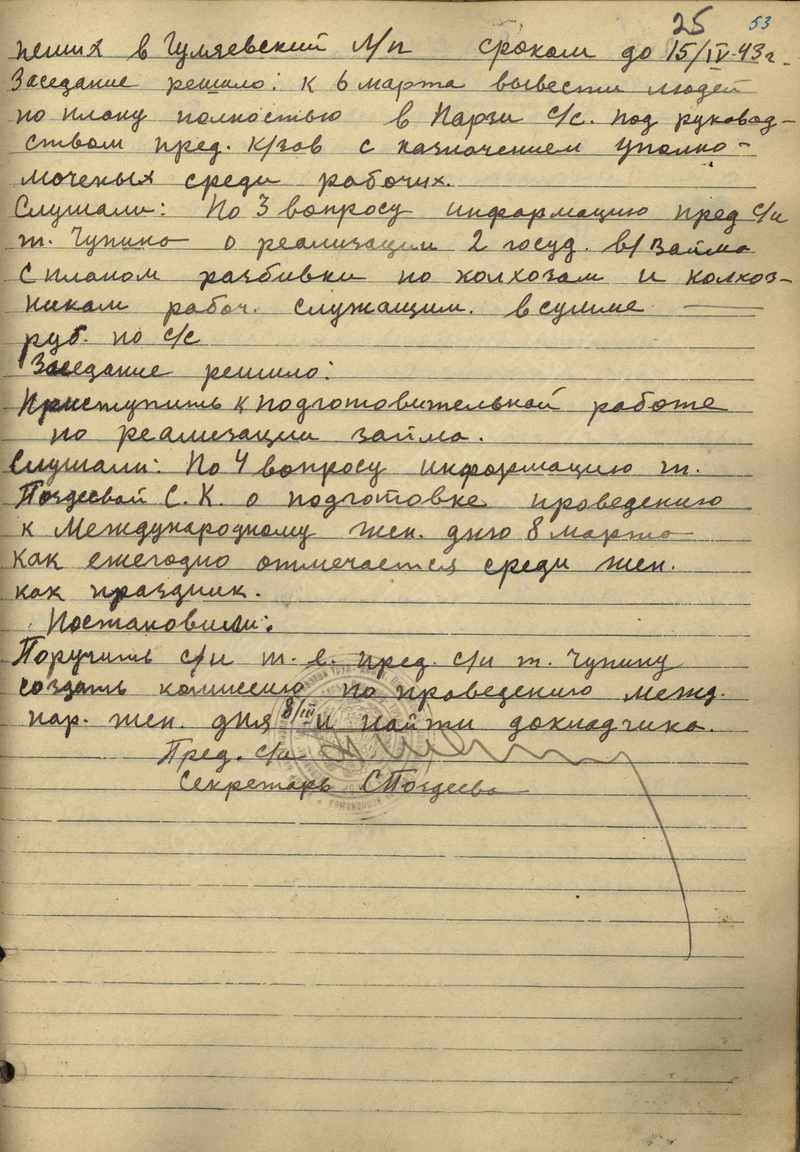 25 53
пеших в Гуляевский л/п сроком до 15/IV-43 г.
Заседание решило: к 6 марта вывести людей
по плану полностью в Парзи с/с. под руковод-
ством пред. к/зов с назначением уполно-
моченых среди рабочих.
Слушали: По 3 вопросу информацию пред с/и
т. Чупина о реализации 2 госуд. в/займа
с планом разбивки по колхозам и колхоз-
никам рабоч. служащим. в сумме —
руб. по с/с
Заседание решило:
Приступить к подготовительной работе
по реализации займа.
Слушали: По 4 вопросу информацию т.
Поздеевой С. К. о подготовке проведению
к Международному жен. дню 8 марта
как ежегодно отмечается среди жен.
как праздник.
Постановили:
Поручить с/и т. е. пред. с/и т. Чупину
создать комиссию по проведению межд.
нар. жен. дня 8/III и найти докладчика.
Пред. с/и
Секретарь СПоздеева